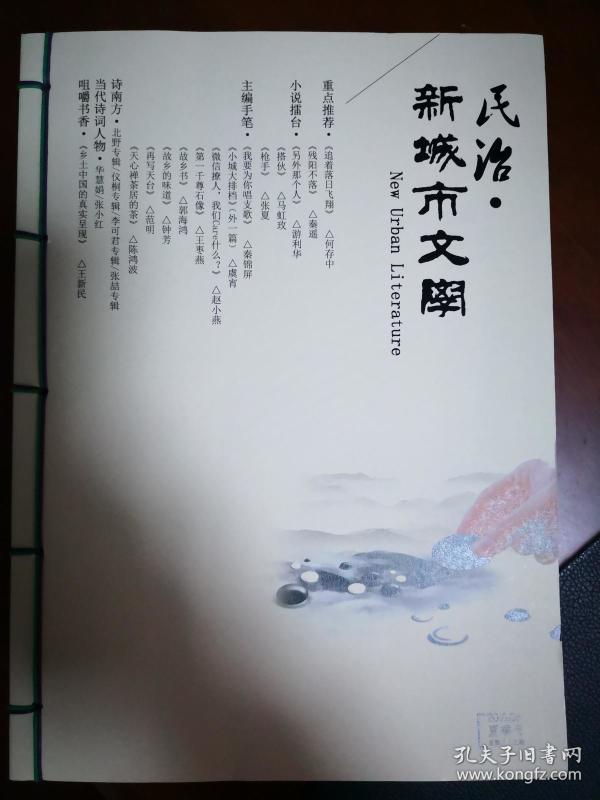 民治·
新城市文學
New Urban Literature
重点推荐·
《追着落日飞翔》 △何存中
《残阳不落》 △秦遥
小说擂台·
《另外那个人》 △游利华
《搭伙》 △马虹玫
《枪手》 △张夏
主编手笔·
《我要为你唱支歌》 △秦锦屏
《小城大排档》（外一篇） △虞宵
《微信撩人，我们Care什么？》 △赵小燕
《第一千尊石像》 △王枣燕
《故乡书》 △郭海鸿
《故乡的味道》 △钟芳
《再写天台》 △范明
《天心禅茶居的茶》 △陈鸿波
诗南方·北野专辑/仪桐专辑/李可君专辑/张喆专辑
当代诗词人物·华慧娟/张小红
咀嚼书香·《乡土中国的真实呈现》 △王新民
夏季号
孔夫子旧书网
www.kongfz.com